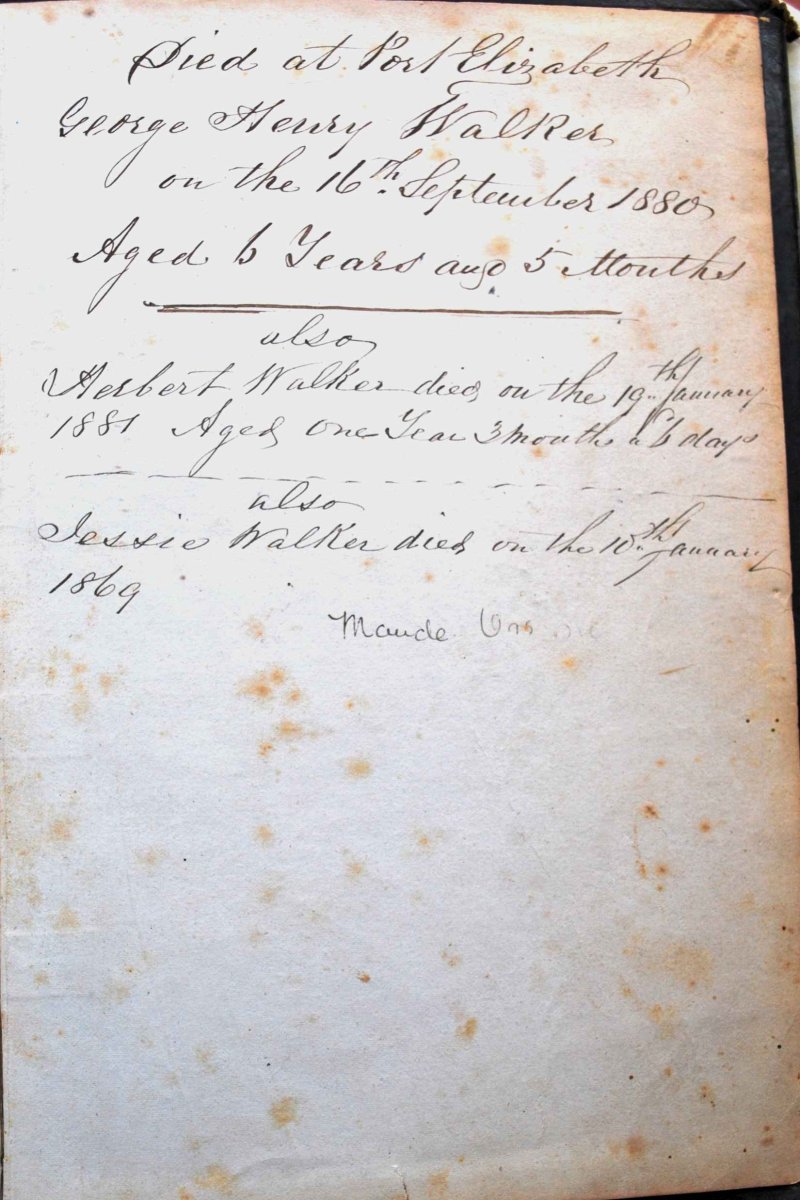 Died at Port Elizabeth
George Henry Walker
on the 16th September 1880
Aged 6 Years and 5 Months
also
Herbert Walker died on the 19th January
1881 Aged One Year 3 months & 6 days
also
Jessie Walker died on the 10th January
1869
Maude